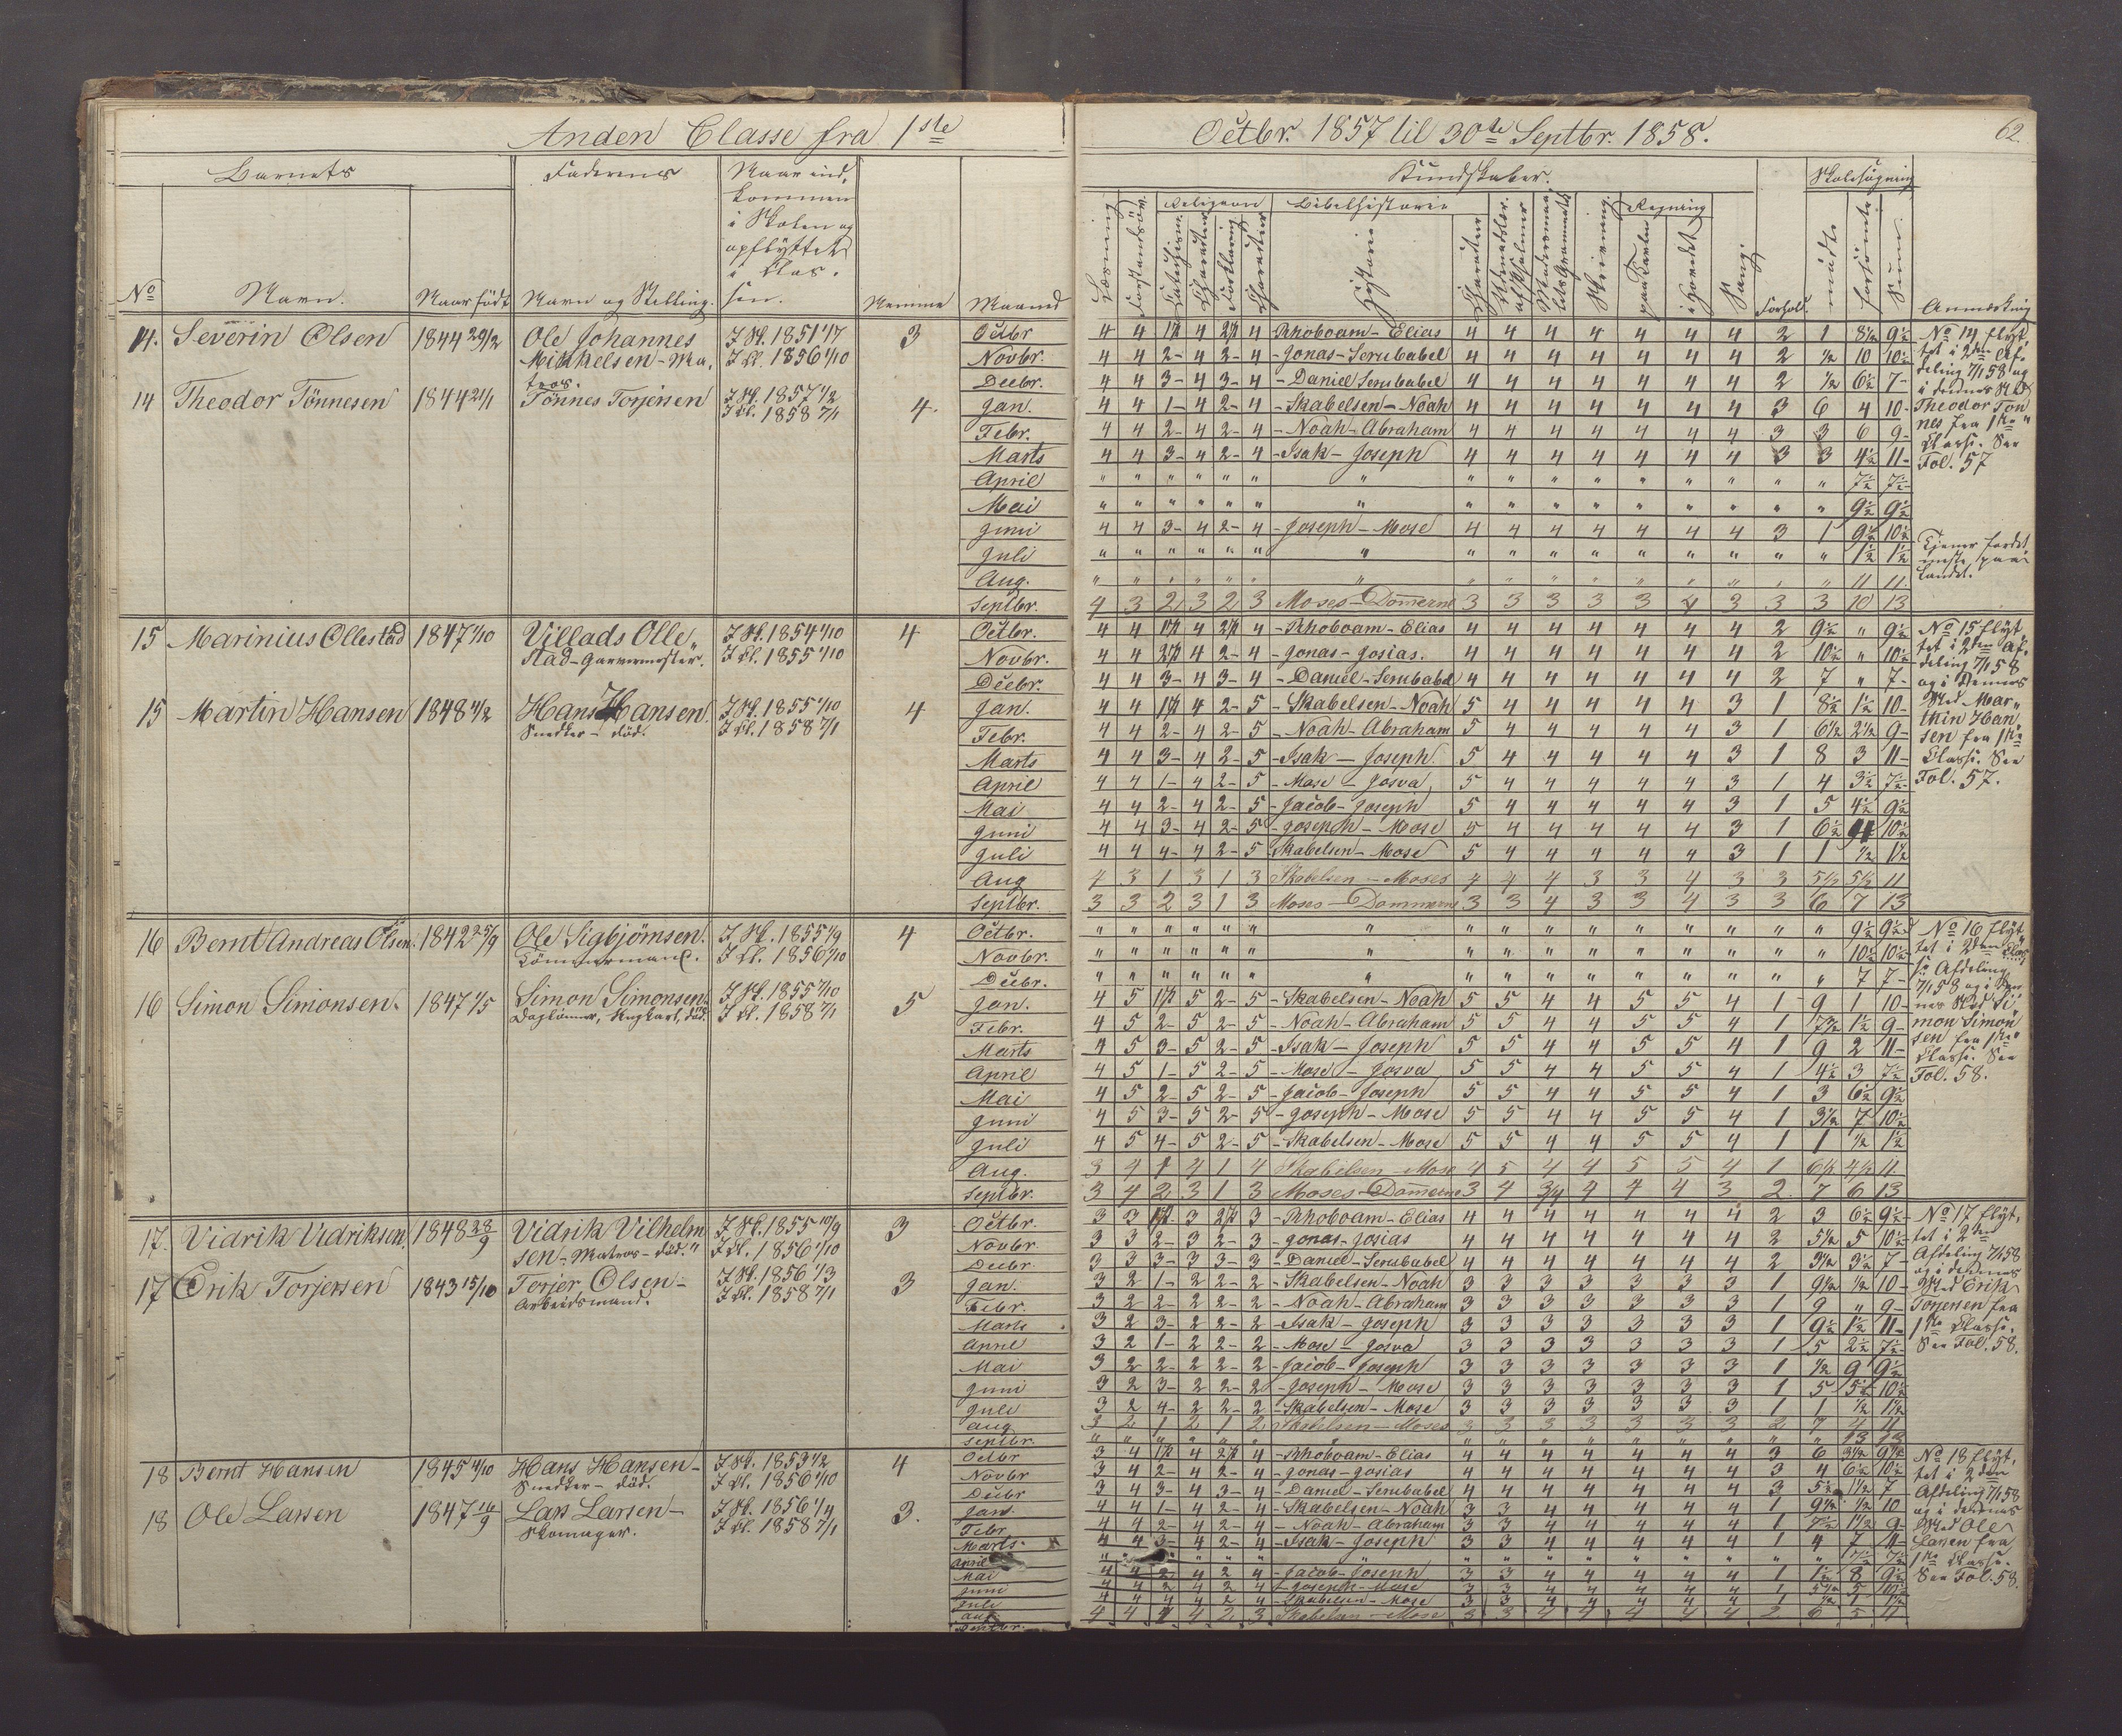 Anden Classe fra 1ste Octbr. 1857 til 30te Septbr. 1858.
62.
Barnets
Faderens
Naar ind,
kommen
i Skolen og
opflyttet
i Clas-
sen.
No
Navn.
Naar født
Navn og Stilling.
Nemme
Maaned
Kundskaber.
Skolesøgning
Religion
Bibelhistorie
Regning
Historie
Skrivning
paa Tavle
i Hovedet
Sang
Forhold.
mødte
forsømte
Sum.
Anmærkning
14. Severin Olsen 1844 29/12 Ole Johannes I Sk. 1851 1/7 3
Mikkelsen - Ma, I Cl. 1856 1/10
tros.
14 Theodor Tönnesen 1844 21/1 Tönnes Torjersen I Sk. 1857 1/2 4.
I Cl. 1858 7/1
Octbr 4 4 1½ 4 2½ 4 - Rhoboam - Elias 4 4 4 4 4 4 4 2 1 8½ 9½
Novbr. 4 4 2- 4 2- 4 - Jonas - Serubabel 4 4 4 4 4 4 4 2 ½ 10 10½
Decbr. 4 4 3- 4 3- 4 - Daniel Serubabel 4 4 4 4 4 4 4 2 ½ 6½ 7-
Jan. 4 4 1- 4 2- 4 - Skabelsen - Noah 4 4 4 4 4 4 4 3 6 4 10-
Febr. 4 4 2- 4 2- 4 - Noah - Abraham 4 4 4 4 4 4 4 3 3 6 9-
Marts 4 4 3- 4 2- 4 - Isak - Joseph 4 4 4 4 4 4 4 3 3 4½ 11-
April " " " " " " " " " " " " " " " " 7½ 7½
Mai " " " " " " " " " " " " " " " " 9½ 9½
Juni 4 4 3- 4 2- 4 - Joseph - Mose 4 4 4 4 4 4 4 3 1 9½ 10½
Juli " " " " " " " " " " " " " " " " 1½ 1½
Aug. " " " " " " " " " " " " " " " " 11 11
Septbr. 4 3 2 3 2 3 Moses - Dommerne 3 3 3 3 3 4 3 3 3 10 13
No 14 flyt,
tet i 2den Af,
deling 7/1 58 og
i dennes Sted
Theodor Tön
nes fra 1ste
Classe. See
Fol. 57
Tjener fordet
meste paa
Landet.
15 Marinius Ollestad 1847 1/10 Villads Olle, I Sk. 1854 1/10 4
stad - Garvermester. I Cl. 1855 1/10
15 Martin Hansen 1848 4/2 Hans Hansen I Sk. 1855 1/10 4
Snedker - död. I Cl. 1858 7/1
Octbr. 4 4 1½ 4 2½ 4 - Rhoboam - Elias 4 4 4 4 4 4 4 2 9½ " 9½
Novbr. 4 4 2½ 4 2- 4 - Jonas - Josias. 4 4 4 4 4 4 4 2 10½ " 10½
Decbr. 4 4 3- 4 3- 4 - Daniel - Serubabel 4 4 4 4 4 4 4 2 7 " 7-
Jan. 4 4 1½ 4 2- 5 - Skabelsen - Noah 5 4 4 4 4 4 3 1 8½ 1½ 10-
Febr. 4 4 2- 4 2- 5 - Noah - Abraham 5 4 4 4 4 4 3 1 6½ 2½ 9-
Marts 4 4 3- 4 2- 5 - Isak - Joseph. 5 4 4 4 4 4 3 1 8 3 11-
April 4 4 1- 4 2- 5 - Mose - Josva 5 4 4 4 4 4 3 1 4 3½ 7½
Mai 4 4 2- 4 2- 5 - Jacob - Joseph 5 4 4 4 4 4 3 1 5 4½ 9½
Juni 4 4 3- 4 2- 5 - Joseph - Mose 5 4 4 4 4 4 3 1 6½ 4 10½
Juli 4 4 4- 4 2- 5 - Skabelsen - Mose 5 4 4 4 4 4 3 1 1 ½ 1½
Aug 4 3 1 3 1 3 Skabelsen - Moses 4 4 4 3 3 4 3 3 5½ 5½ 11
Septbr. 3 3 2 3 1 3 Moses - Dommerne 3 3 4 3 3 4 3 3 6 7 13
No 15 flyt,
tet i 2den Af,
deling 7/1 58
og i dennes
Sted Mar,
thin Han
sen fra 1ste
Classe. See
Fol. 57.
16 Bernt Andreas Olsen. 1842 25/9 Ole Sigbjörnsen. I Sk. 1855 1/9 4
Tömmermand. I Cl. 1856 1/10
16 Simon Simonsen. 1847 1/5 Simon Simonsen. I Sk. 1855 1/10 5
Daglönner, död. I Cl. 1858 7/1
Octbr. " " " " " " " " " " " " " " " " 9½ 9½
Novbr. " " " " " " " " " " " " " " " " 10½ 10½
Decbr. " " " " " " " " " " " " " " " " 7 7-
Jan. 4 5 1½ 5 2- 5 - Skabelsen - Noah 5 5 4 4 5 5 4 1 9 1 10-
Febr. 4 5 2- 5 2- 5 - Noah - Abraham 5 5 4 4 5 5 4 1 7½ 1½ 9-
Marts 4 5 3- 5 2- 5 - Isak - Joseph 5 5 4 4 5 5 4 1 9 2 11-
April 4 5 1- 5 2- 5 - Mose - Josva 5 5 4 4 5 5 4 1 4½ 3 7½
Mai 4 5 2- 5 2- 5 - Jacob - Joseph 5 5 4 4 5 5 4 1 3 6½ 9½
Juni 4 5 3- 5 2- 5 - Joseph - Mose 5 5 4 4 5 5 4 1 3½ 7 10½
Juli 4 5 4- 5 2- 5 - Skabelsen - Mose 5 5 4 4 5 5 4 1 1 ½ 1½
Aug. 3 4 1 4 1 4 Skabelsen - Mose 4 5 4 4 5 5 4 1 6½ 4½ 11
Septbr. 3 4 2 3 1 3 Moses - Dommerne 3 4 3/4 4 4 4 3 2 7 6 13
No 16 flyt,
tet i 2den Clas,
se Afdeling
7/1 58 og i den
nes Sted Si
mon Simon
sen fra 1ste
Classe. See
Fol. 58.
17. Vidrik Vidriksen. 1848 28/9 Vidrik Vilhelm I Sk. 1855 10/9 3
sen - Matros - död. I Cl. 1856 1/10
17 Erik Torjersen 1843 15/10 Torjer Olsen - I Sk. 1856 1/3 3
Arbeidsmand. I Cl. 1858 7/1
Octbr. 3 3 1½ 3 2½ 3 - Rhoboam - Elias 4 4 4 4 4 4 4 2 3 6½ 9½
Novbr 3 3 2- 3 2- 3 - Jonas - Josias 4 4 4 4 4 4 4 2 5½ 5 10½
Decbr 3 3 3- 3 3- 3 - Daniel - Serubabel 4 4 4 4 4 4 4 2 3½ 3½ 7-
Jan. 3 2 1- 2 2- 2 - Skabelsen - Noah 3 3 3 3 3 3 3 1 9½ ½ 10-
Febr. 3 2 2- 2 2- 2 - Noah - Abraham 3 3 3 3 3 3 3 1 9 " 9-
Marts 3 2 3- 2 2- 2 - Isak - Joseph 3 3 3 3 3 3 3 1 9½ 1½ 11-
April 3 2 1- 2 2- 2 - Mose - Josva 3 3 3 3 3 3 3 1 5 2½ 7½
Mai 3 2 2- 2 2- 2 - Jacob - Joseph 3 3 3 3 3 3 3 1 ½ 9 9½
Juni 3 2 3- 2 2- 2 - Joseph - Mose 3 3 3 3 3 3 3 1 5 5½ 10½
Juli 3 2 4- 2 2- 2 - Skabelsen - Mose 3 3 3 3 3 3 3 1 1 ½ 1½
Aug 3 2 1 2 1 2 Skabelsen - Moses 3 3 3 3 3 3 3 2 7 4 11
Septbr. " " " " " " " " " " " " " " " " 13 13
No 17 flyt,
tet i 2den
Afdeling 7/1 58
og i dennes
Sted Erik
Torjersen fra
1ste Classe.
See Fol. 58.
18 Bernt Hansen 1845 4/10 Hans Hansen - I Sk. 1853 1/2 4
Snedker - död. I Cl. 1856 1/10
18 Ole Larsen 1847 16/9 Lars Larsen - I Sk. 1856 1/4 3.
Skomager. I Cl. 1858 7/1
Octbr 3 4 1½ 4 2½ 4 - Rhoboam - Elias 4 4 4 4 4 4 4 3 6 3½ 9½
Novbr 3 4 2- 4 2- 4 - Jonas - Josias 4 4 4 4 4 4 4 3 4 6½ 10½
Decbr 3 4 3- 4 3- 4 - Daniel - Serubabel 4 4 4 4 4 4 4 3 5½ 1½ 7
Jan. 4 4 1- 4 2- 4 - Skabelsen - Noah 3 3 4 4 4 4 4 1 9½ ½ 10
Febr 4 4 2- 4 2- 4 - Noah - Abraham 3 3 4 4 4 4 4 1 7½ 1½ 9-
Marts 4 4 3- 4 2- 4 - Isak - Joseph 3 3 4 4 4 4 4 1 4 7 11-
April " " " " " " " " " " " " " 7½ 7½
Mai 4 4 2 4 2 4 - Jacob - Joseph 3 3 4 4 4 4 4 1 1½ 8 9½
Juni 4 4 2 4 2 4 - Joseph - Mose 3 3 4 4 4 4 4 1 5½ 5 10½
Juli 4 4 4 4 2 4 - Skabelsen - Mose 3 3 4 4 4 4 4 1 ½ 1 1½
Aug. 4 4 1 4 2 3 Skabelsen - Mose 3 3 4 4 4 4 4 2 6 5 11
Septbr.
No 18 flyt,
tet i 2den
Afdeling 7/1 58
og i dennes
Sted Ole
Larsen fra
1ste Classe.
See Fol. 58.